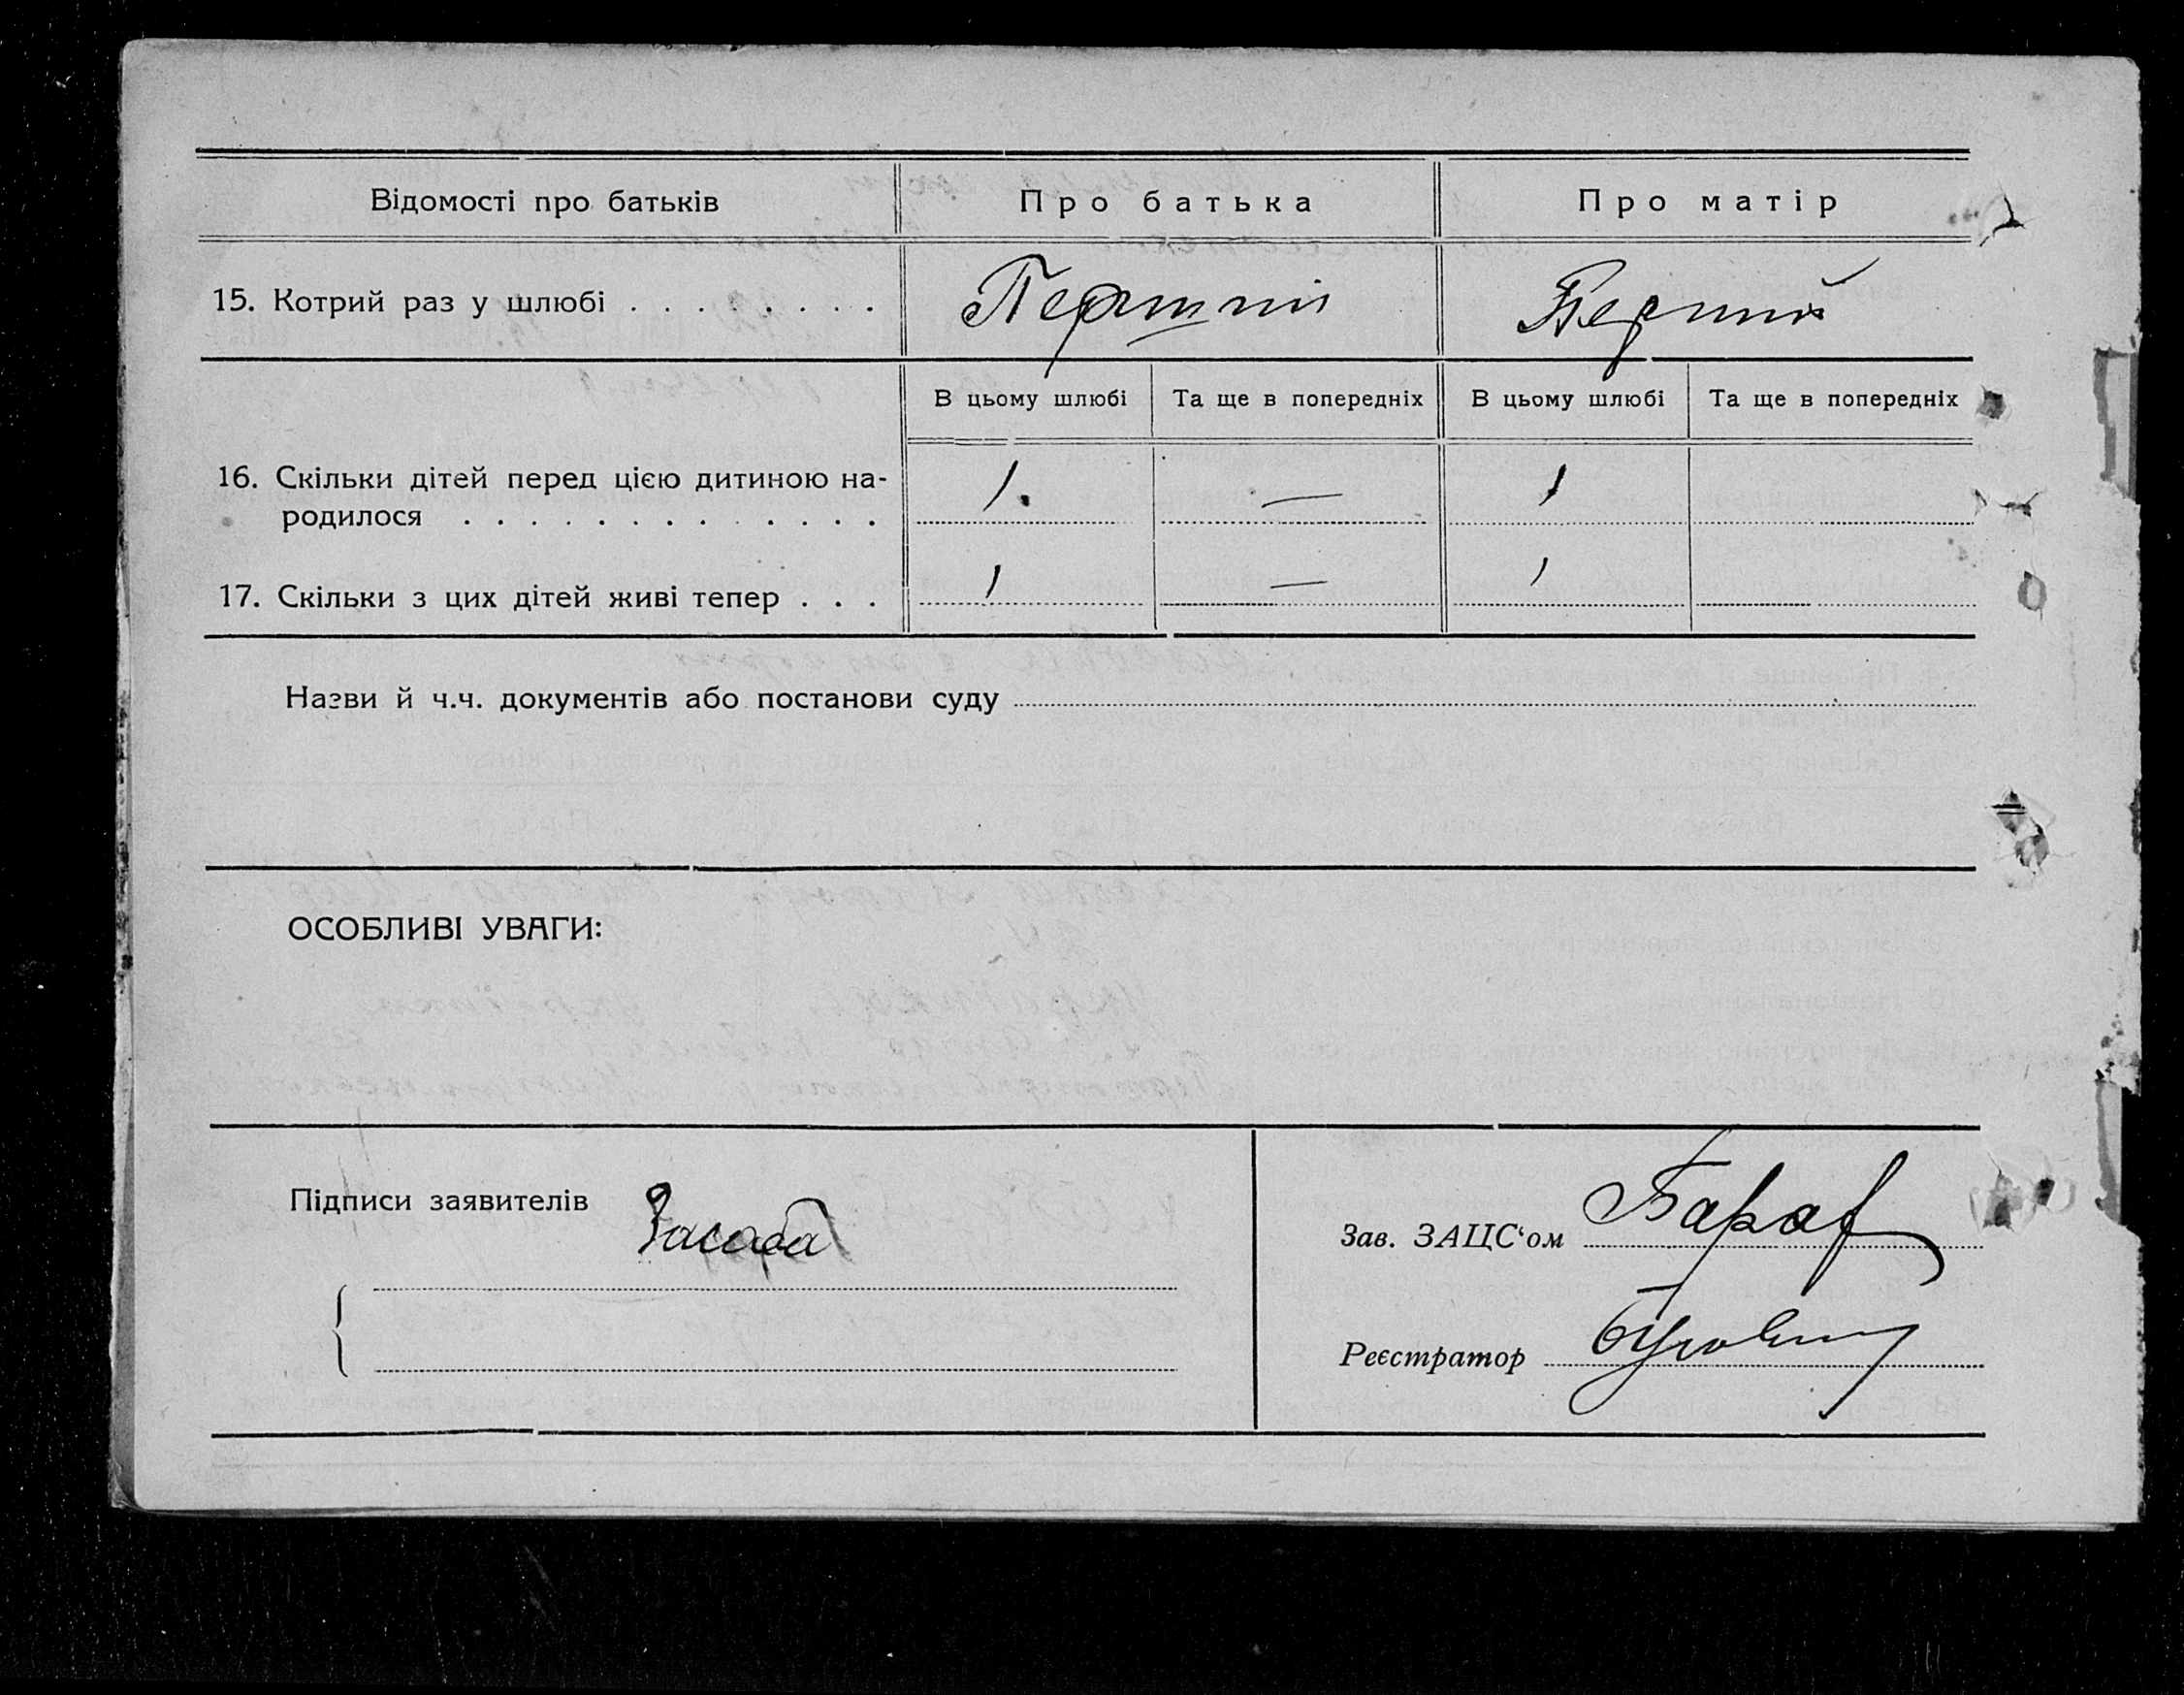 Відомості про батьків Про батька Про матір
15. Котрий раз у шлюбі . . . . . . . . Перший Перший
В цьому шлюбі Та ще в попередніх В цьому шлюбі Та ще в попередніх
16. Скільки дітей перед цією дитиною на- 1. — 1
родилося . . . . . . . . . . . . .
17. Скільки з цих дітей живі тепер . . . 1 — 1
Назви й ч.ч. документів або постанови суду
ОСОБЛИВІ УВАГИ:
Підписи заявителів
Зав. ЗАЦС‘ом
Реєстратор